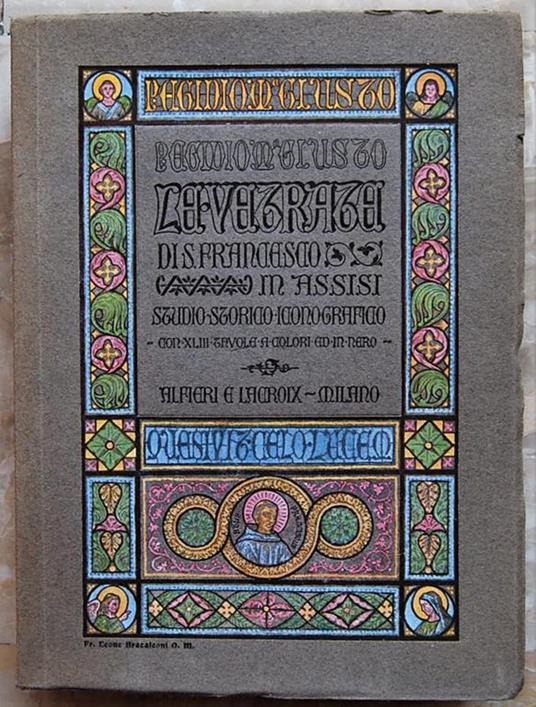 P. EGIDIO M.ᵃ GIUSTO
P. EGIDIO M.ᵃ GIUSTO
LE VETRATE
DI S. FRANCESCO
IN ASSISI
STUDIO · STORICO · ICONOGRAFICO
- CON · XLIII · TAVOLE · A · COLORI · ED · IN · NERO -
ALFIERI E LACROIX ~ MILANO
Fr. Leone Bracaloni O. M.